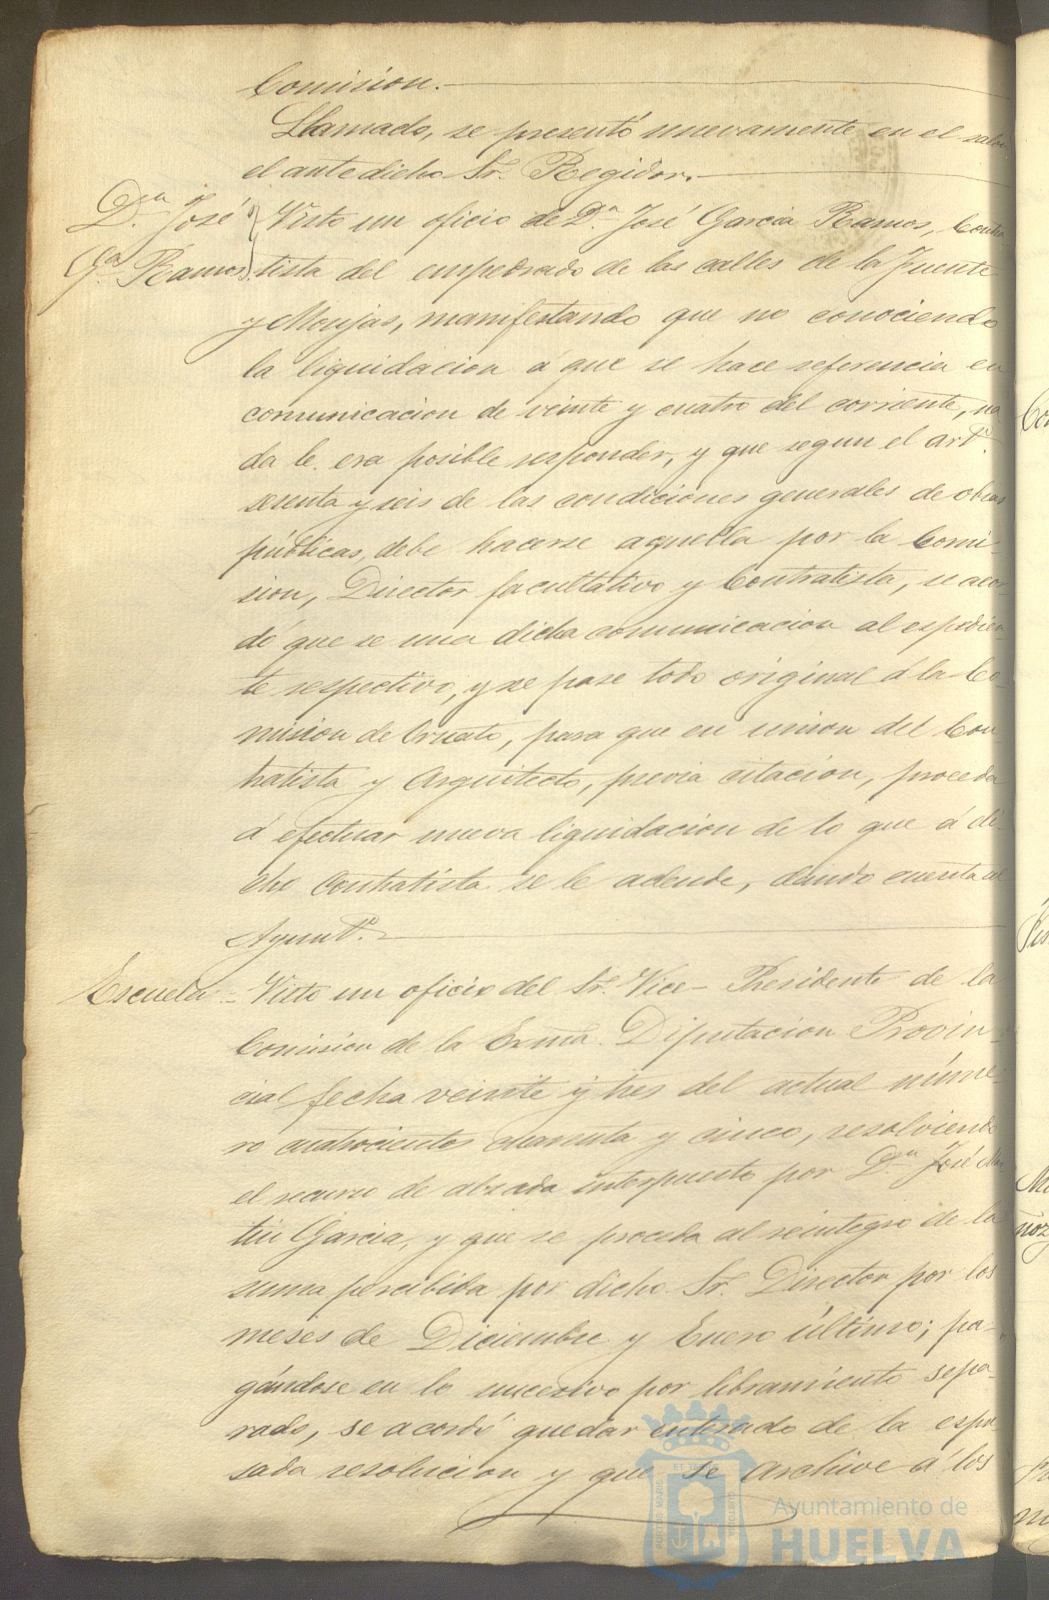 Comision.
Llamado, se presentó nuevamente en el salon
el antedicho Sr. Regidor.
Dn. José
Ga. Ramos
Visto un oficio de Dn. José Garcia Ramos, Contra
tista del empedrado de las calles de la Fuente
y Monjas, manifestando que no conociendo
la liquidacion á que se hace referencia en
comunicacion de veinte y cuatro del corriente, na
da le era posible responder, y que segun el arto.
sesenta y seis de las condiciones generales de obras
públicas, debe hacerse aquella por la Comi-
sion, Director facultativo y Contratista, se acor
dó que se una dicha comunicacion al espedien-
te respectivo, y se pase todo original á la Co-
mision de Ornato, para que en union del Con-
tratista y Arquitecto, previa citacion, proceda
á efectuar nueva liquidacion de lo que á di-
cho Contratista se le adeude, dando cuenta al
Ayunto.
Escuela = Visto un oficio del Sr. Vice-Presidente de la
Comision de la Exma. Diputacion Provin-
cial fecha veinte y tres del actual núme-
ro cuatrocientos y cinco, resolviendo
el recurso de alzada interpuesto por Dn. José Mar
tin Garcia, y que se proceda al reintegro de la
suma percibida por dicho Sr. Director por los
meses de Diciembre y Enero último; pa-
gándose en lo sucesivo por libramiento sepa-
rado, se acordó quedar enterado de la espre
sada resolucion y que se archive á los
Ayuntamiento de
HUELVA